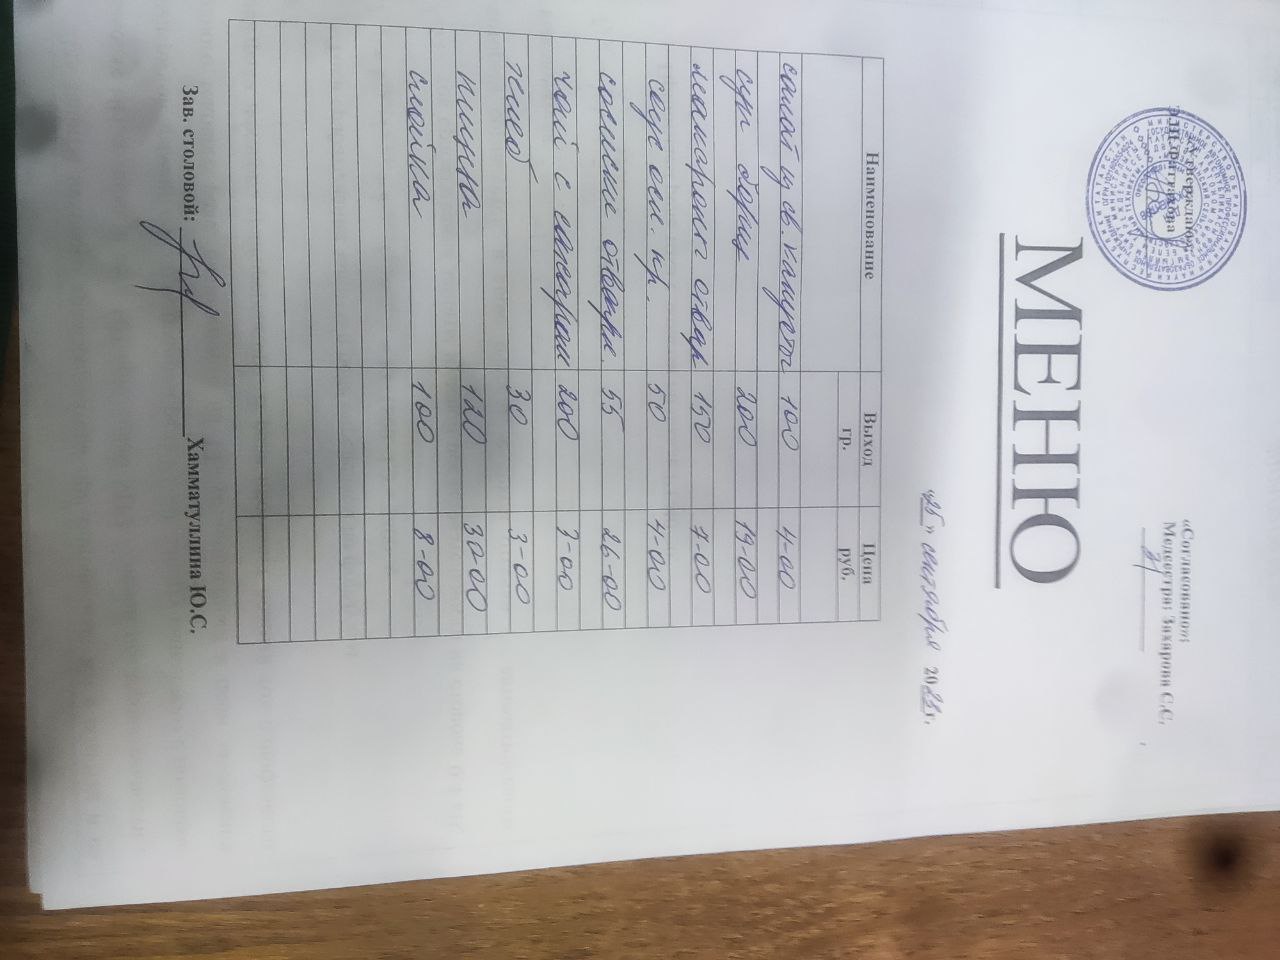 «Утверждаю»
«Согласовано»
Медсестра: Захарова С.С.
МЕНЮ
"26" сентября 2023г.
Наименование Выход гр. Цена руб.
салат из св. капусты 100 4-00
суп борщ 200 19-00
макароны отвар 150 7-00
соус осн. кр. 50 4-00
сосиски отварн. 55 26-00
чай с сахаром 200 3-00
хлеб 30 3-00
пицца 120 30-00
слойка 100 8-00
Зав. столовой: Хамматуллина Ю.С.